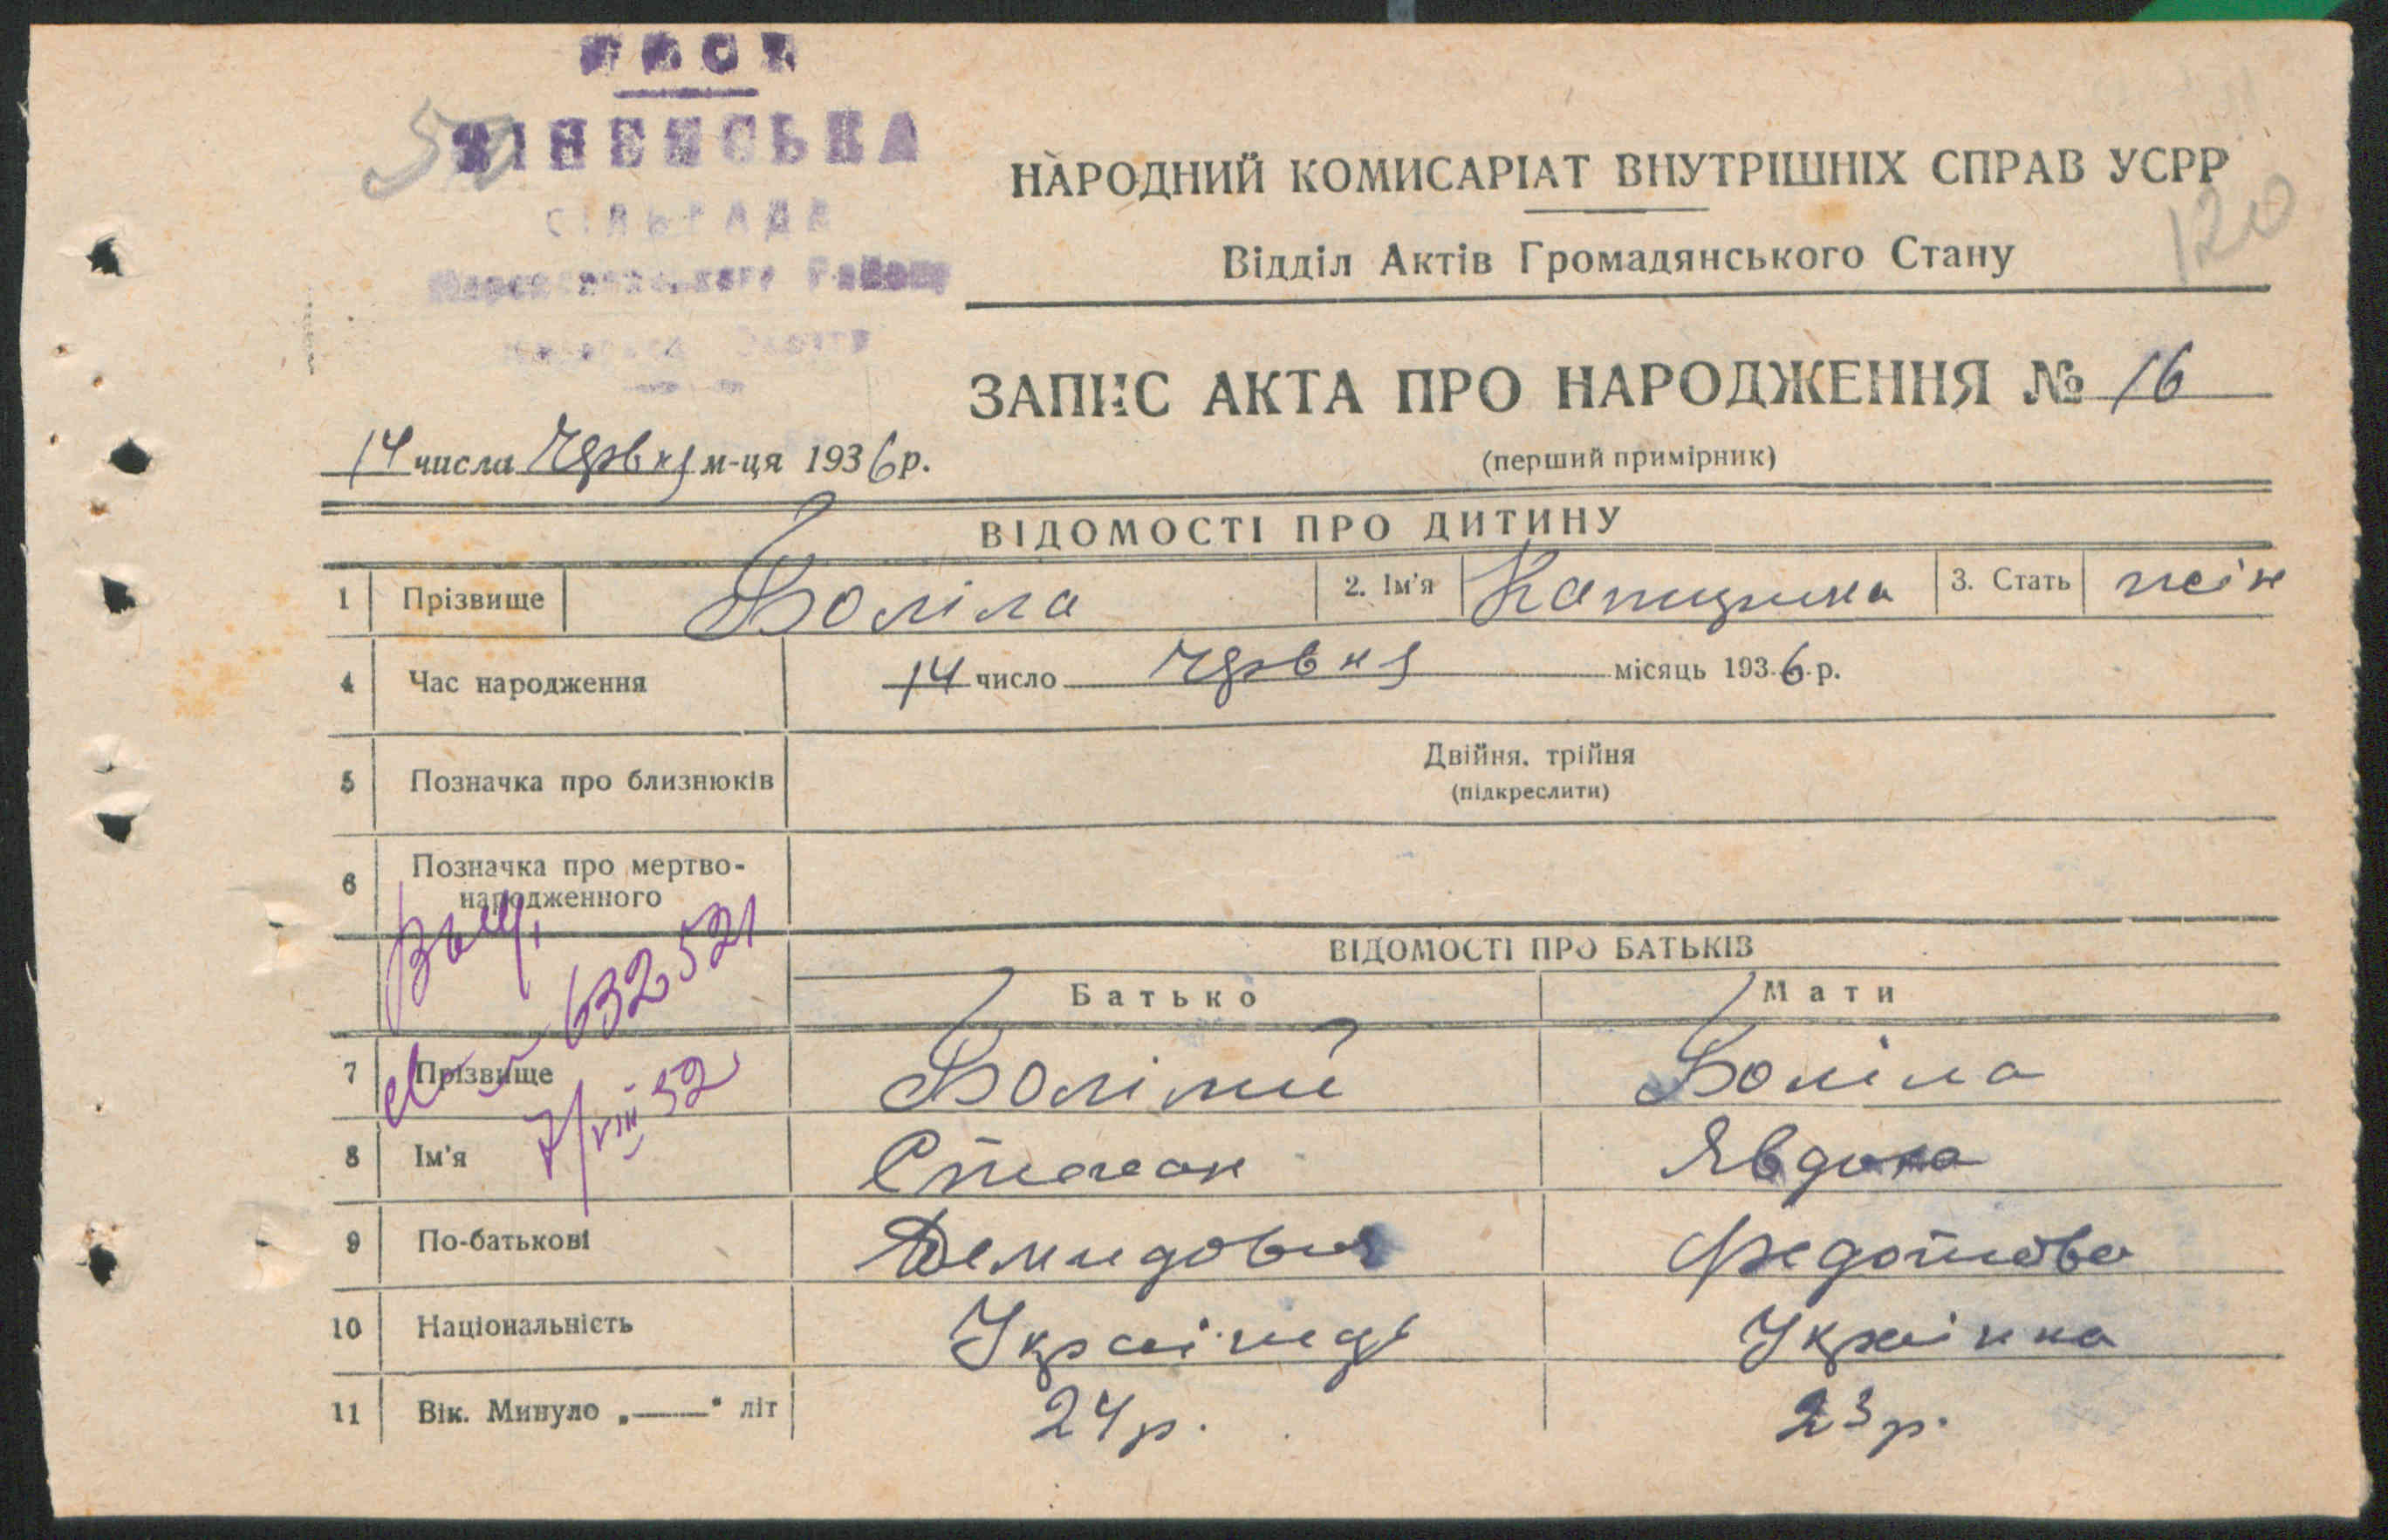 УСРР
50
СІЛЬРАДА
Району
НАРОДНИЙ КОМИСАРІАТ ВНУТРІШНІХ СПРАВ УСРР
120
Відділ Актів Громадянського Стану
ЗАПИС АКТА ПРО НАРОДЖЕННЯ № 16
(перший примірник)
14 числа Червня м-ця 1936 р.
ВІДОМОСТІ ПРО ДИТИНУ
1 Прізвище Боліла 2. Ім'я Катирина 3. Стать жін
4 Час народження 14 число Червня місяць 1936 р.
5 Позначка про близнюків Двійня, трійня
(підкреслити)
6 Позначка про мертво-
народженного
ВІДОМОСТІ ПРО БАТЬКІВ
Батько Мати
7 Прізвище Болілий Боліла
8 Ім'я Степан Явдоха
9 По-батькові Демидович Федотова
10 Національність Українць Українка
11 Вік. Минуло „——“ літ 24 р. 23 р.
632521
7/VIII 52